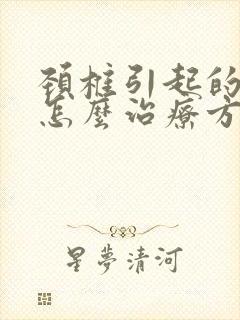 頚椎引起的
怎麼治療方
星夢清河